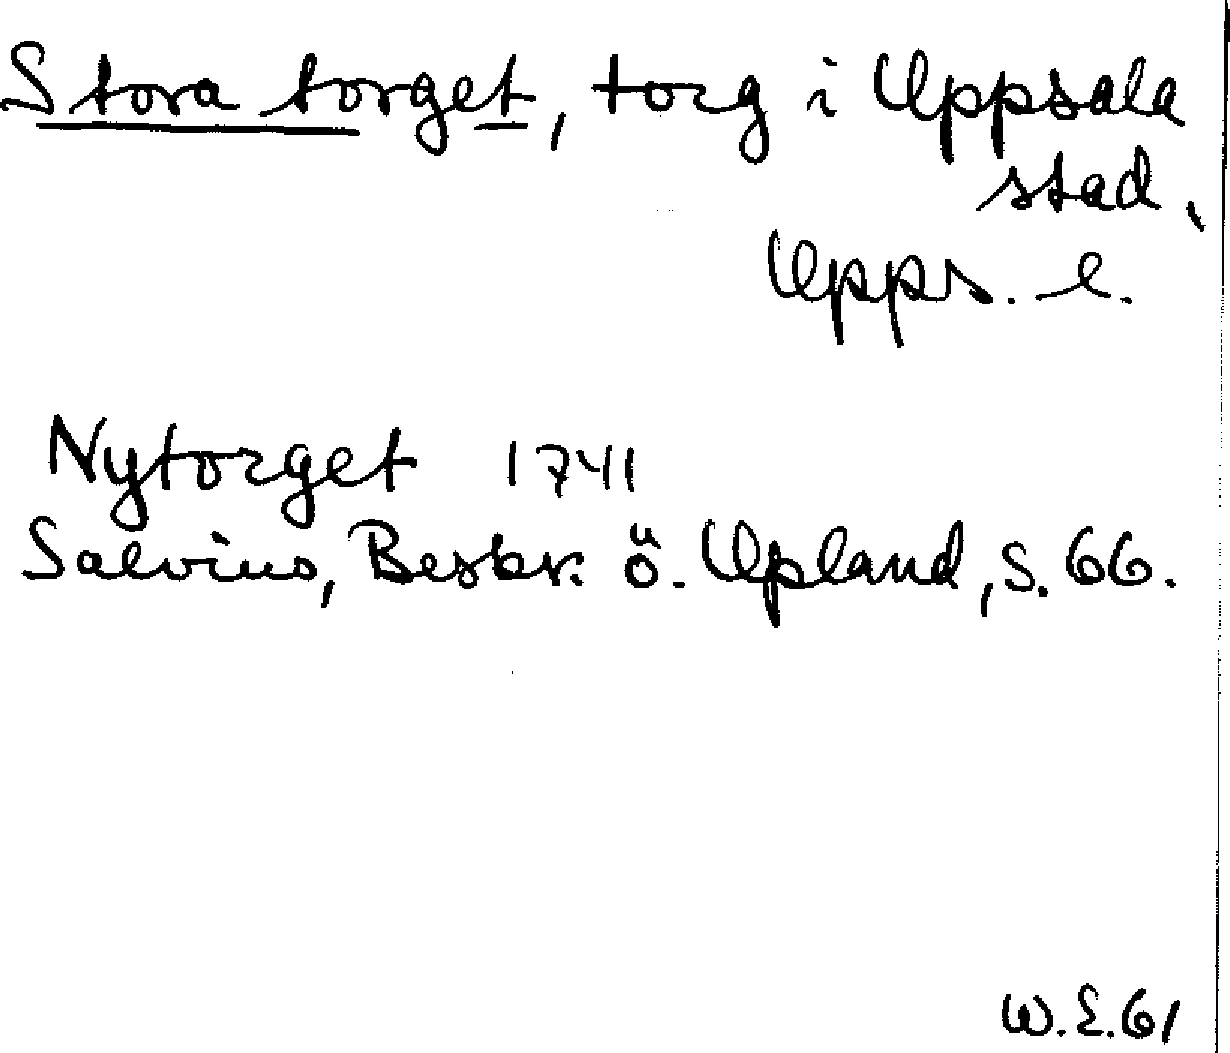 Stora torget, torg i Uppsala
stad,
Upps. l.
Nytorget 1741
Salvius, Beskr. ö. Upland, S. 66.
W.E.61